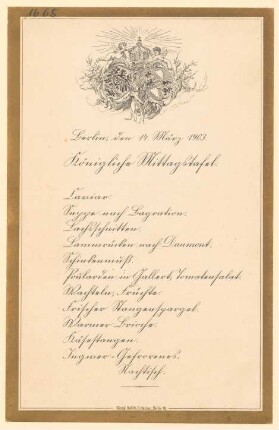 1665
Berlin, den 14. März 1903.
Königliche Mittagstafel.
Caviar.
Suppe nach Bagration.
Lachsschnitten.
Lammrücken nach Daumont.
Schinkenmuß.
Poularden in Gallert, Tomatensalat.
Wachteln, Früchte.
Frischer Stangenspargel.
Warmer
Käsestangen.
Ingwer-Gefrorenes.
Nachtisch.